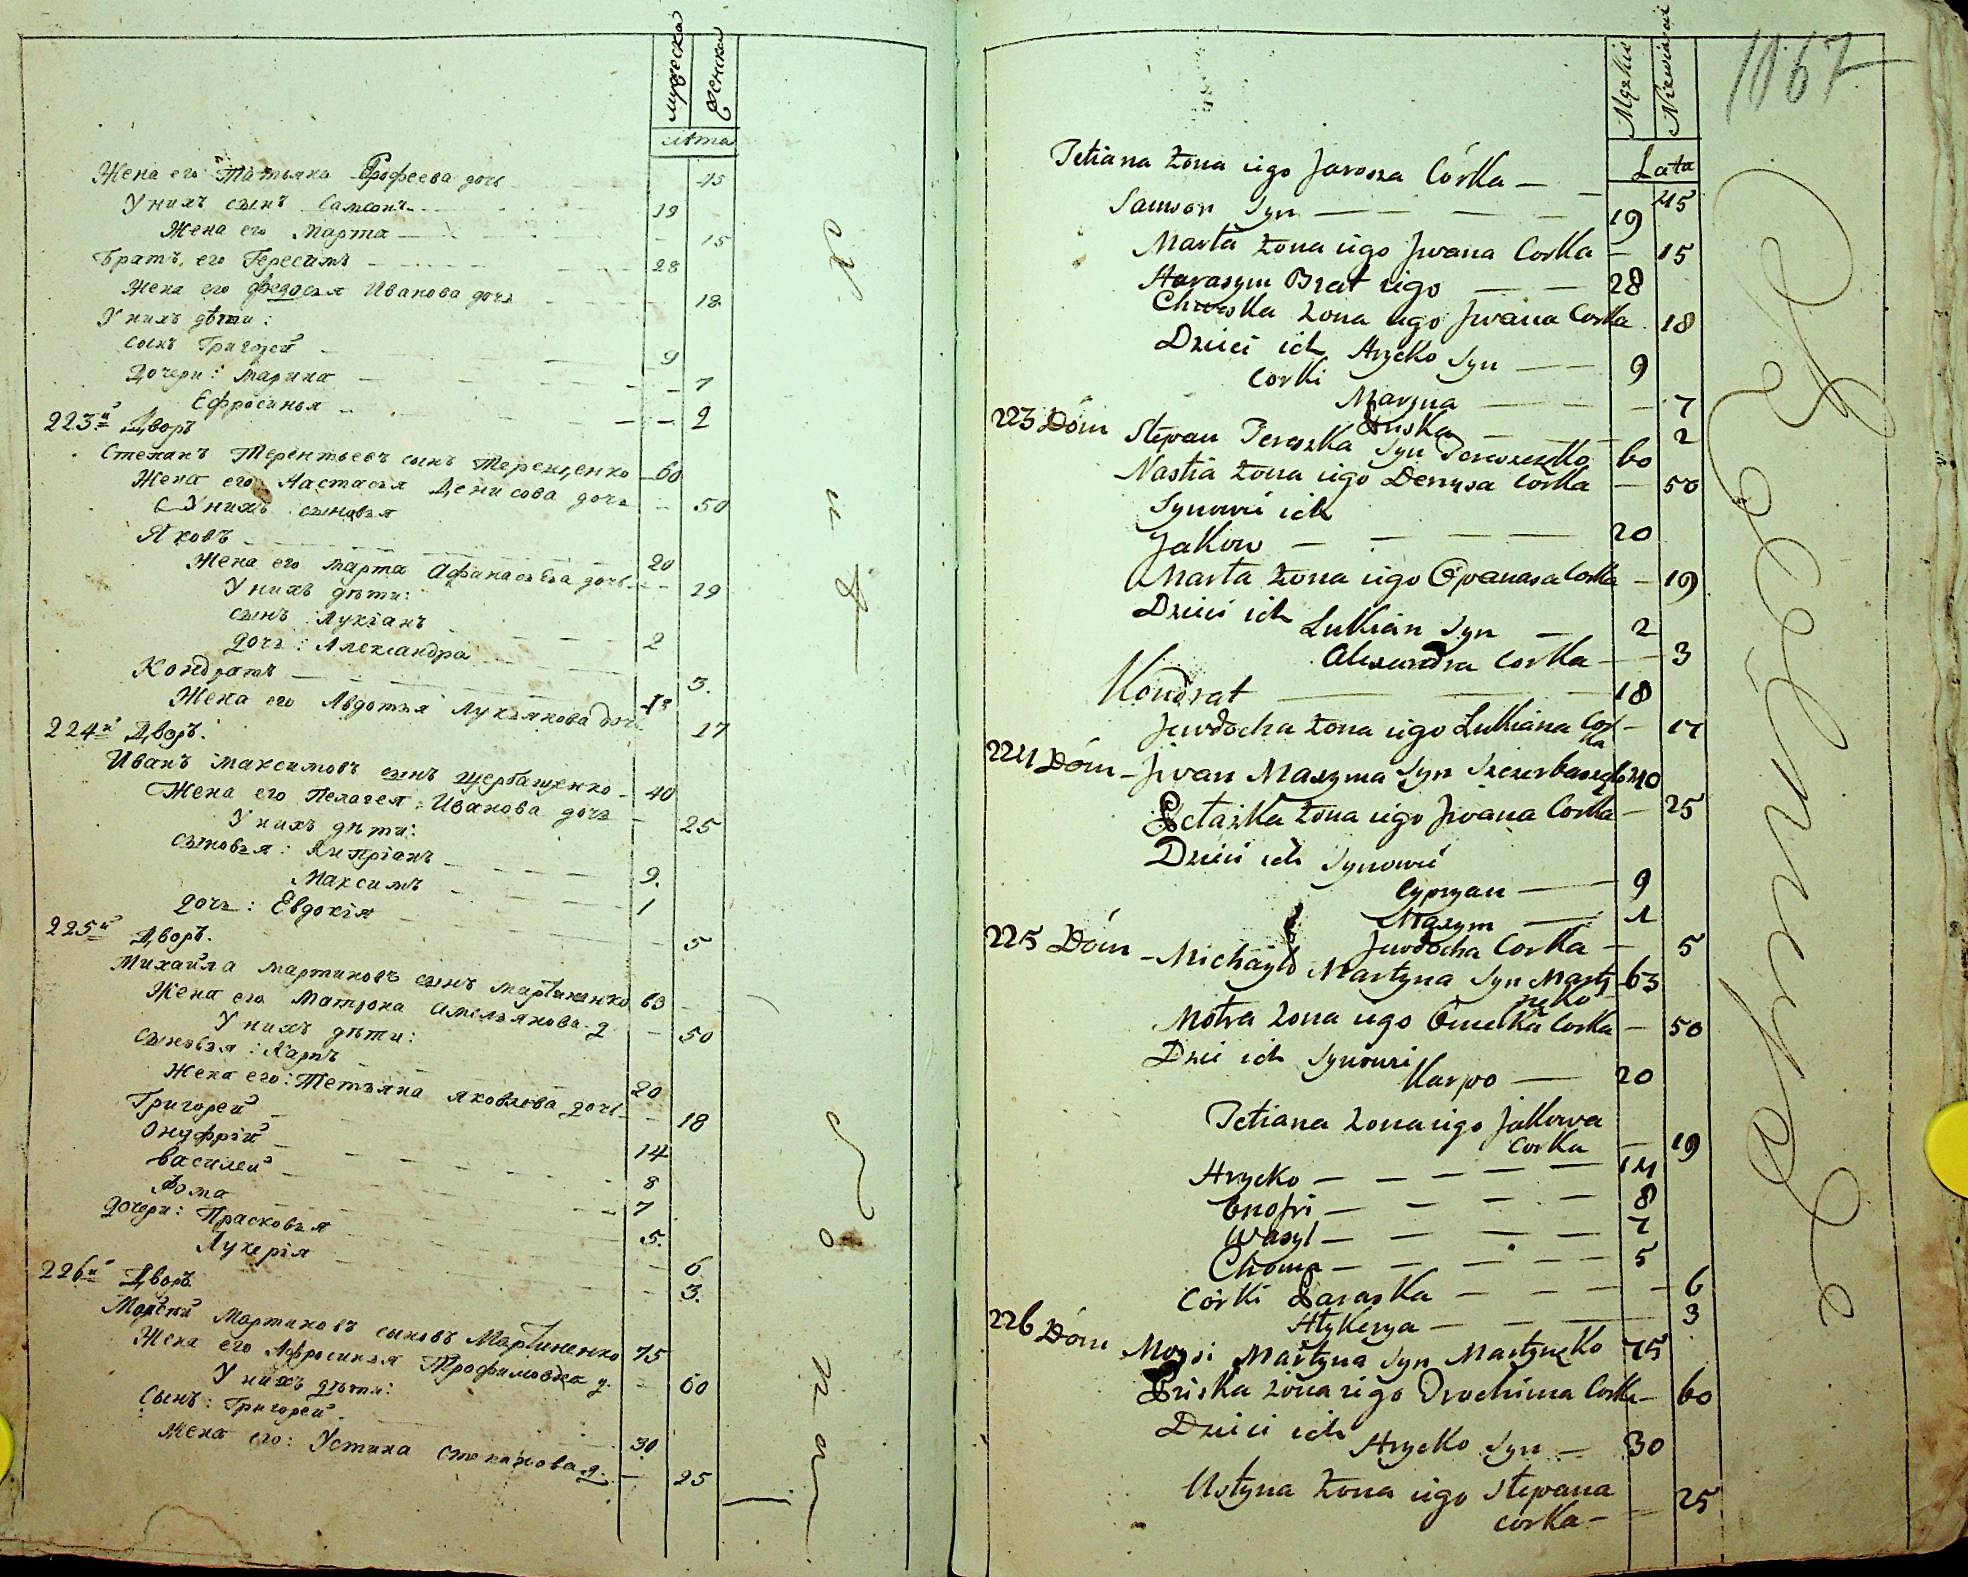 мужеска
женска
лѣта
Жена его Татьяна Ерофеева дочь 45
У нихъ сынъ Самсонъ 19
Жена его Марта 15
Братъ его Гересимъ 28
Жена его Федосья Иванова дочь 18
У нихъ дѣти:
сынъ Григорей 9
Дочери: Марина 7
Ефросинья 2
223й Дворъ
Степанъ Терентьевъ сынъ Терещенко 60
Жена его Настасья Денисова дочь 50
У нихъ сыновья
Яковъ 20
Жена его Марта Афанасьева дочь 29
У нихъ дѣти:
сынъ: Лукіанъ 2
дочь: Александра 3.
Кондратъ 18
Жена его Авдотья Лукьянова доч. 17
224й Дворъ.
Иванъ Максимовъ сынъ Щербащенко 40
Жена его Пелагея: Иванова дочь 25
У нихъ дѣти:
Сыновья: Кипріанъ 9.
Максимъ 1
дочь: Евдокія 5
225й Дворъ.
Михайла Мартиновъ сынъ Мартиненко 63
Жена его Матрона Омельянова д. 50
У нихъ дѣти:
Сыновья: Карпъ 20
Жена его: Тетьяна Яковлева дочь 18
Григорей 14
Онуфрій 8
Василей 7
Фома 5.
Дочери: Прасковья 6
Лукерія 3.
226й Дворъ
Мойсей Мартиновъ сыновъ Мартиненко 75
Жена его Афросинья Трофимовна д. 60
У нихъ дѣти:
Сынъ: Григорей 30.
Жена его: Устина Степанова д. 25
Męzkie
Niewieście
Lata
Tetiana żona iego Jarosza Córka 45
Samson Syn 19
Marta żona iego Jwana Corka 15
Harasym Brat iego 28
Chweska żona iego Jwana Corka 18
Dzieci ich Hrycko Syn 9
Corki
Maryna 7
Priska 2
223 Dóm Stepan Tereszka Syn Tereszczenko 60
Nastia żona iego Denysa Corka 50
Synowie ich
Jakow 20
Marta żona iego Opanasa Corka 19
Dzieci ich
Lukian Syn 2
Alexandra Corka 3
Kondrat 18
Jewdocha żona iego Lukiana Corka 17
224 Dóm Jwan Maxyma Syn Szczerbaszczenko 40
Petaszka żona iego Jwana Corka 25
Dzieci ich Synowie
Cypryan 9
Maxym 1
Jewdocha Corka 5
225 Dóm Michayło Martyna Syn Martynęko 63
Motra żona iego Omelka Corka 50
Dzieci ich Synowie
Karpo 20
Tetiana żona iego Jakowa
Corka 19
Hrycko 14
Onofri 8
Wasyl 7
Choma 5
Córki Paraska 6
Hłykerya 3
226 Dóm Moysi Martyna Syn Martynęko 75
Priska żona iego Trochima Corka 60
Dzieci ich
Hrycko Syn 30
Ustyna żona iego Stepana
corka 25